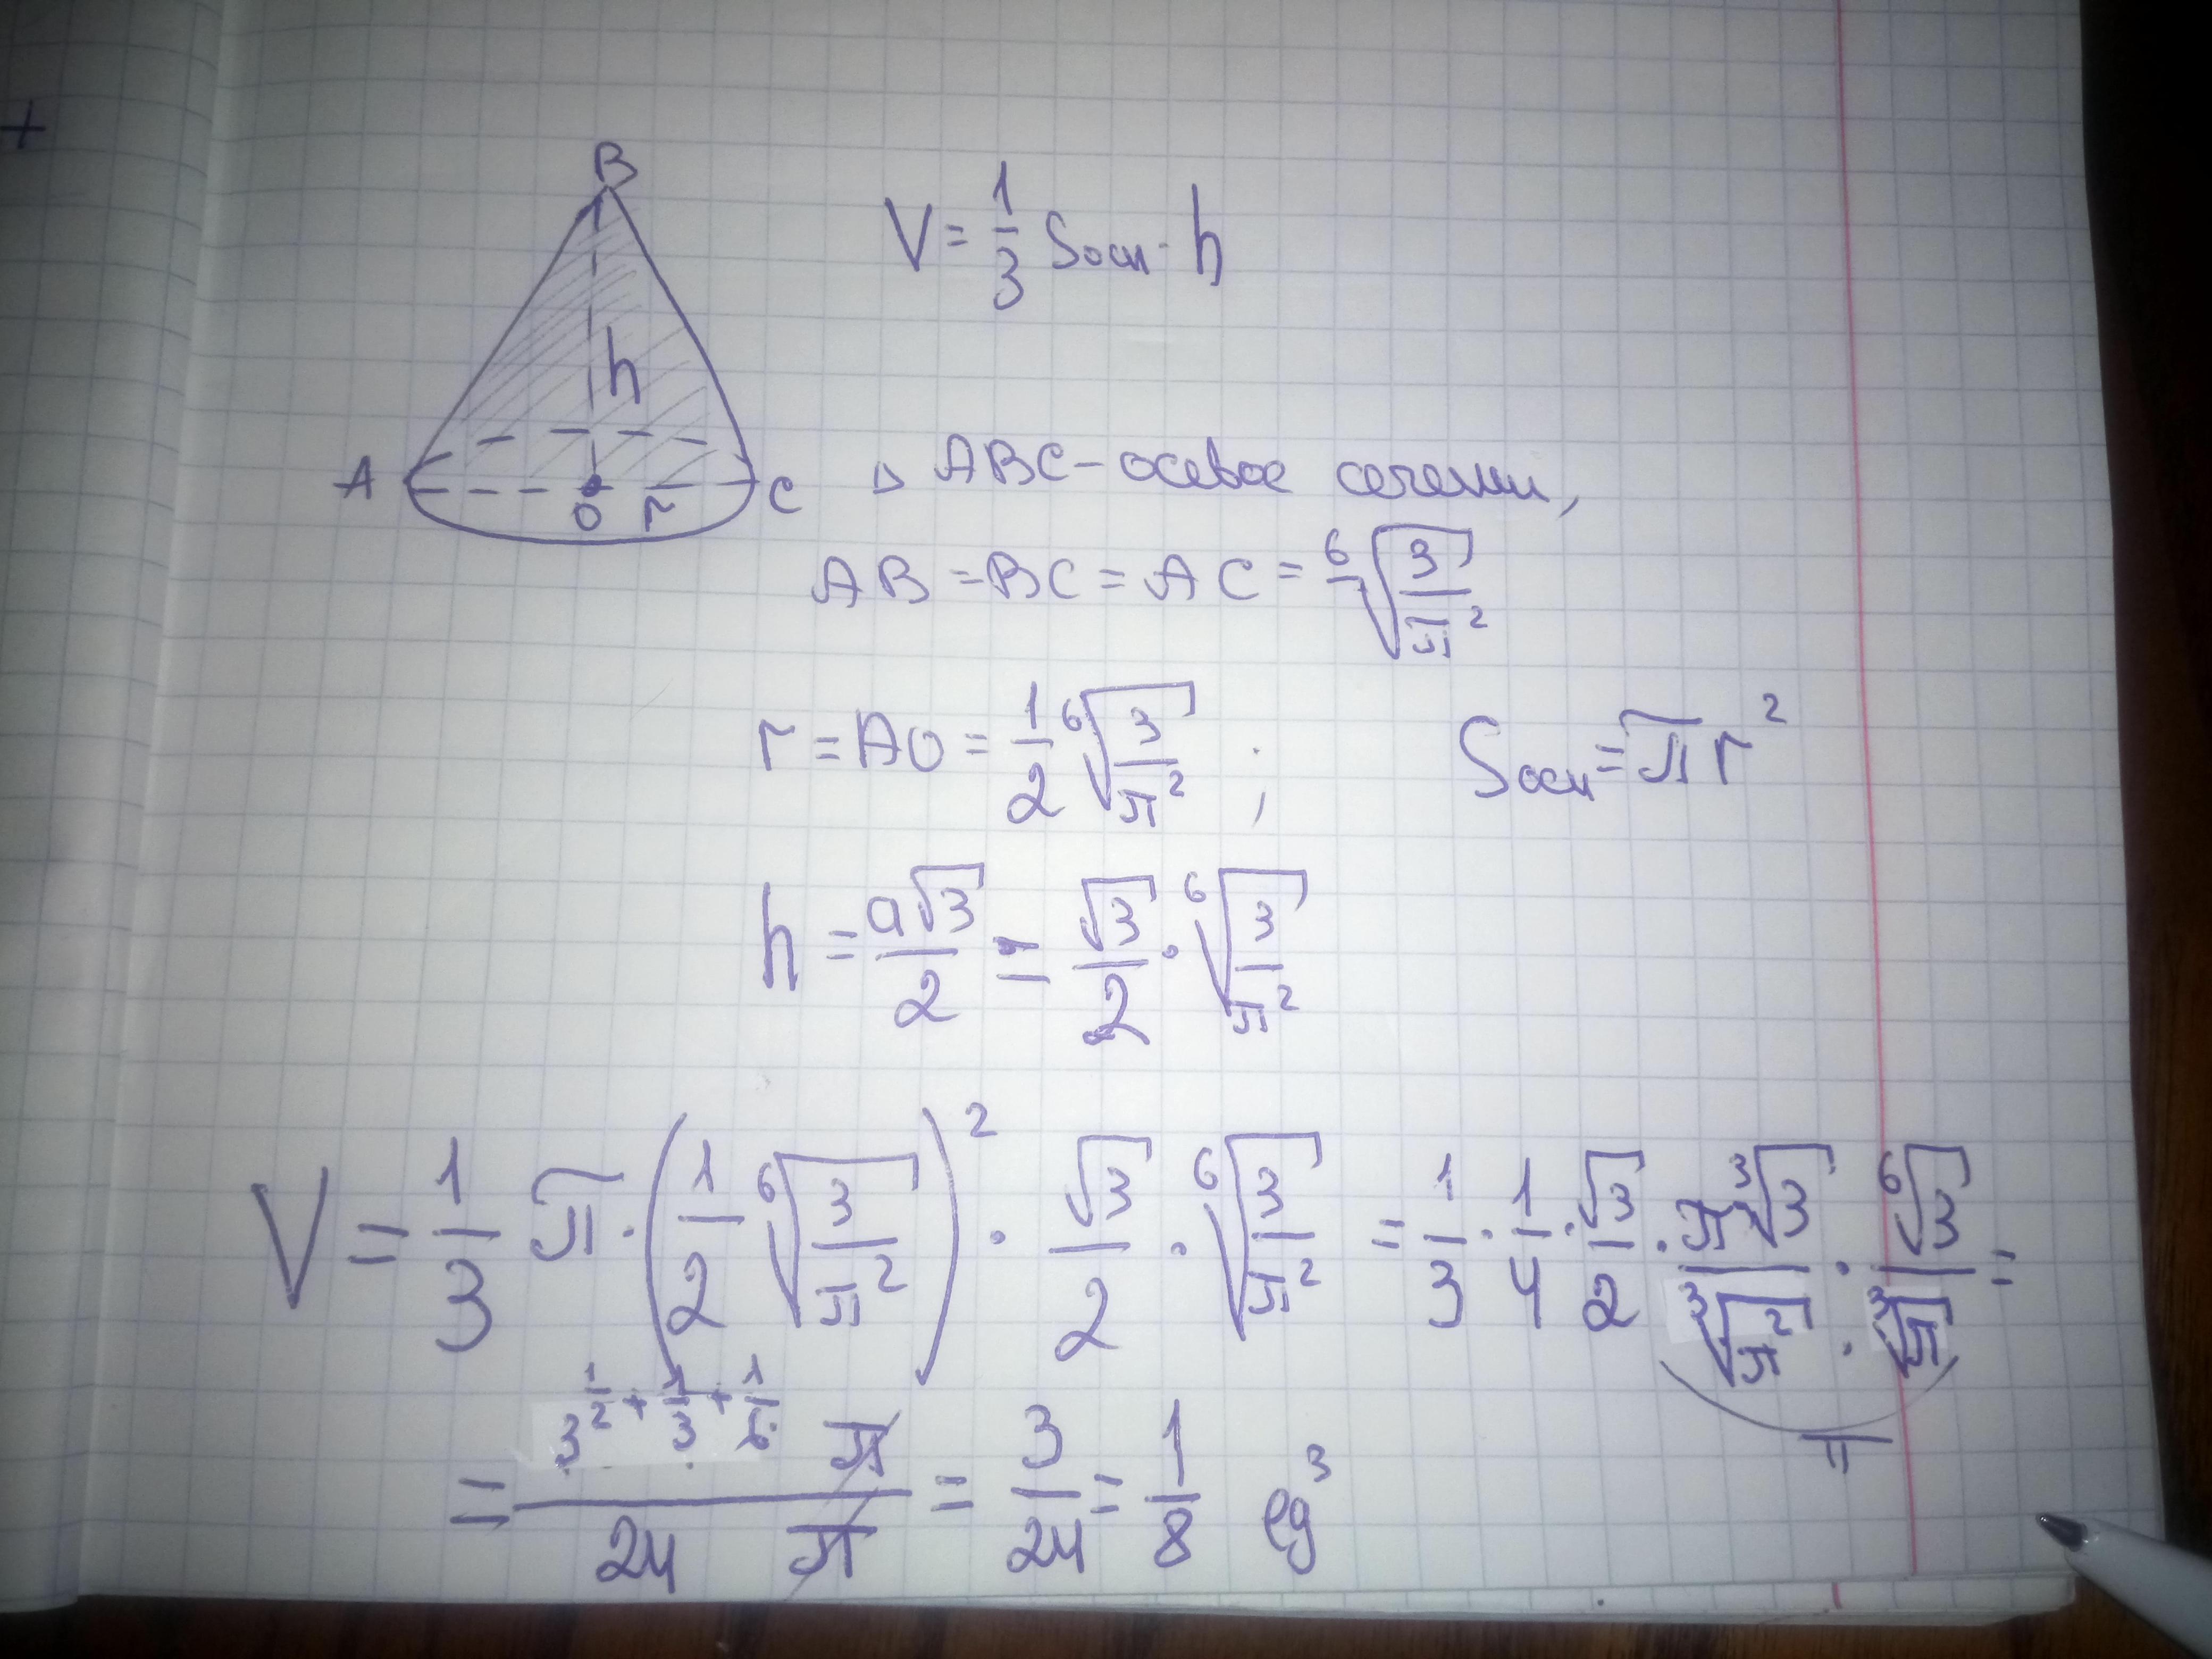 +
B
V = 1/3 Sосн · h
h
A O r C
△ ABC - осевое сечение,
AB = BC = AC = ⁶√(3/π²)
r = AO = 1/2 ⁶√(3/π²) ; Sосн = πr²
h = a√3/2 = √3/2 · ⁶√(3/π²)
V = 1/3 π · (1/2 ⁶√(3/π²))² · √3/2 · ⁶√(3/π²) = 1/3 · 1/4 · √3/2 · π·³√3/³√π² · ⁶√3/³√π =
π
= 3^(1/2 + 1/3 + 1/6) π / 24 π = 3/24 = 1/8 eg³